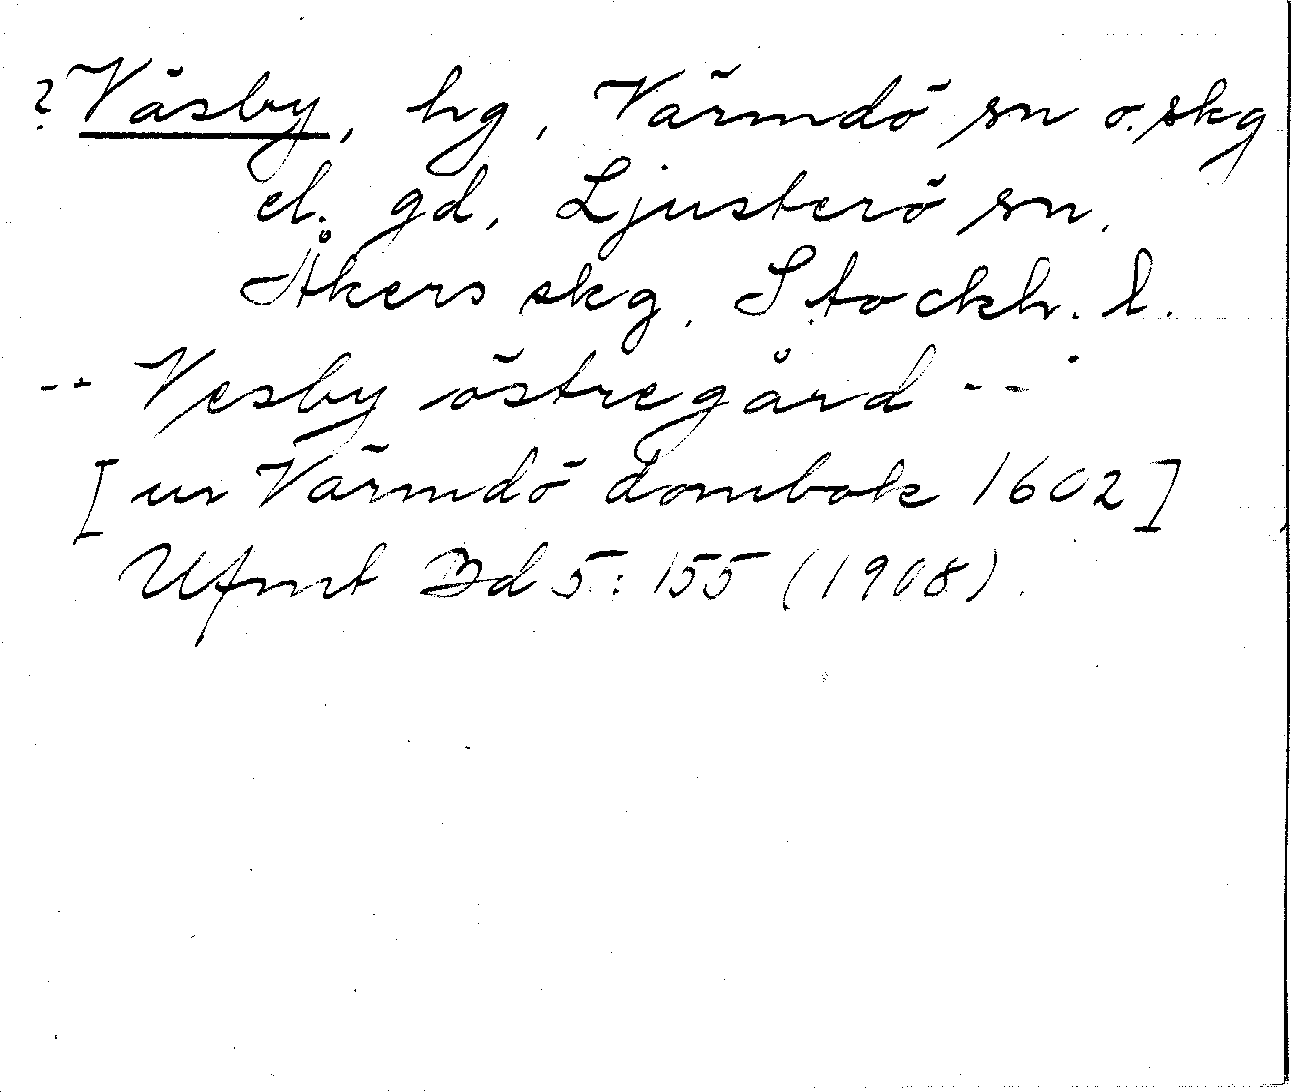 ? Väsby, hg, Värmdö sn o. skg
el. gd, Ljusterö sn,
Åkers skg, Stockh. l.
-- Vesby östregård --
[ur Värmdö dombok 1602]
Ufmt Bd 5: 155 (1908).